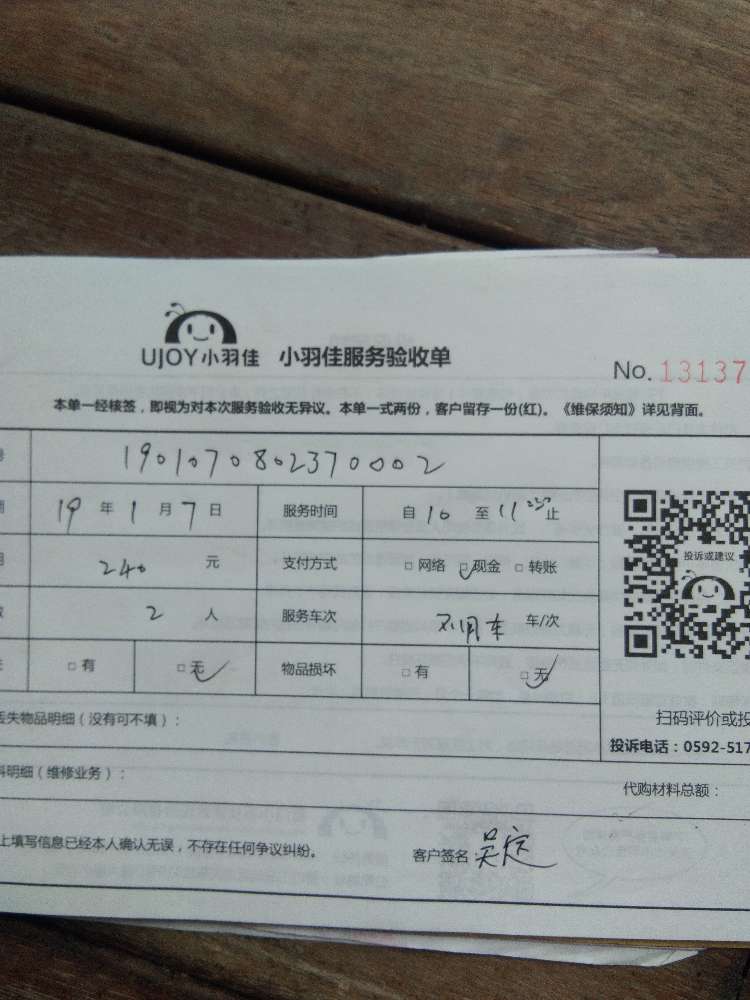 UJOY小羽佳 小羽佳服务验收单
No. 13137
本单一经核签，即视为对本次服务验收无异议。本单一式两份，客户留存一份(红)。《维保须知》详见背面。
1901070802370002
19年1月7日 服务时间 自10至11 止
240 元 支付方式 □网络 ☑现金 □转账
2人 服务车次 不用车 车/次
□有 ☑无 物品损坏 □有 ☑无
投诉或建议
丢失物品明细（没有可不填）：
扫码评价或投
投诉电话：0592-517
料明细（维修业务）：
代购材料总额：
上填写信息已经本人确认无误，不存在任何争议纠纷。 客户签名 吴